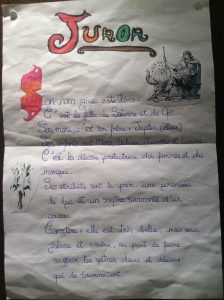 Junon
Son nom grec est Héra.
C'est la fille de Saturne et de Ops.
Son mari, c'est son frère : Jupiter (Zeus)
C'est la déesse protectrice des femmes et du
mariage.
Ses attributs sont le paon, une grenade
le lys et un sceptre surmonté d'un
coucou.
Caractère : elle est très belle, mais aussi
jalouse et colère, au point de faire
les autres dieux et déesses
qui la tourmentent.